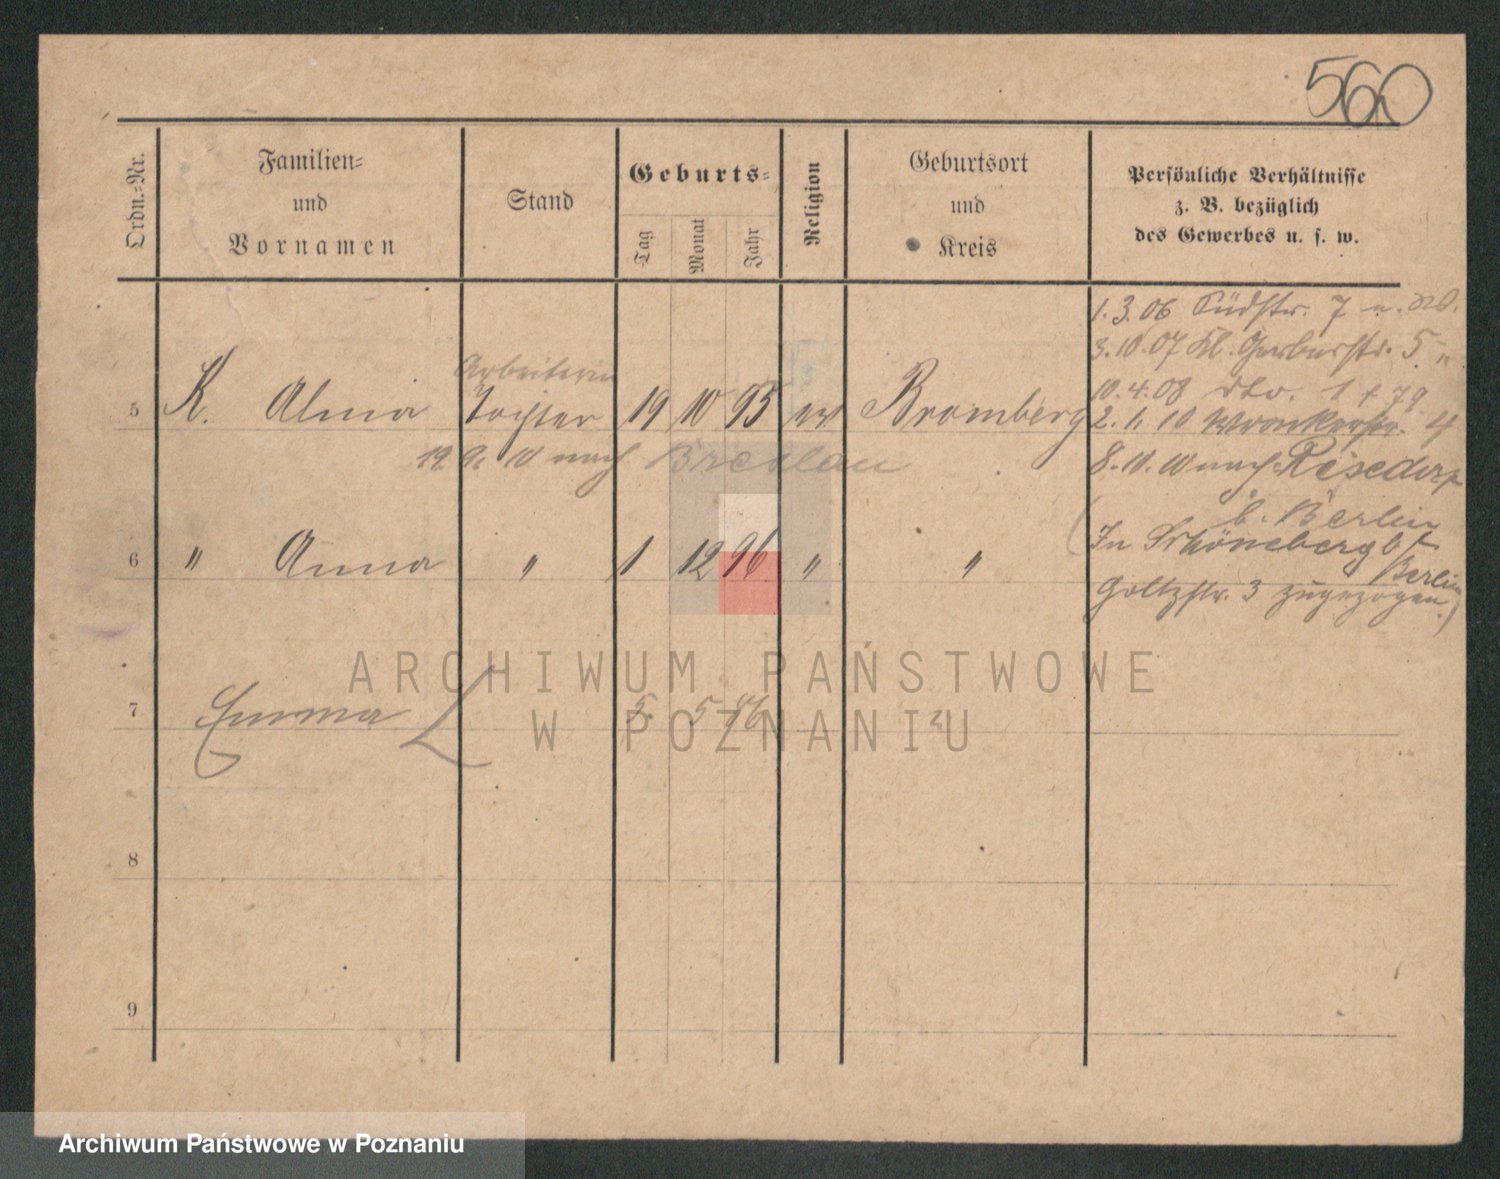 560
Ordn.-Nr.
Familien-
und
Vornamen
Stand
Geburts-
Tag
Monat
Jahr
Religion
Geburtsort
und
Kreis
Persönliche Verhältnisse
z. B. bezüglich
des Gewerbes u. s. w.
1. 3. 06 Südstr. 7
3. 10. 07 Kl. Gerberstr. 5
Arbeiterin
10. 4. 08 dto. 1
5 K. Alma Tochter 19 10 95 ev Bromberg
2. 1. 10 Wronkerstr. 4
19. 9. 10 nach Breslau
8. 10. 10 nach
b. Berlin
6 " Anna " 1 12 96 " "
(In Schöneberg b/
Berlin
Goltzstr. 3 zugezogen.)
ARCHIWUM PAŃSTWOWE
7 Emma 5. 5 86
W POZNANIU
8
9
Archiwum Państwowe w Poznaniu